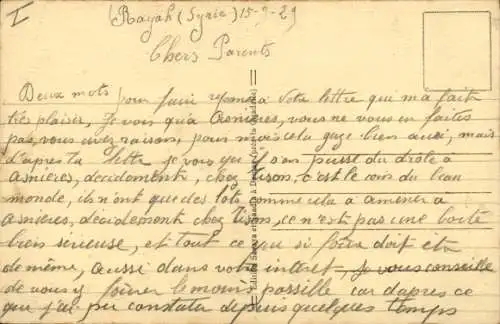 I
(Rayak (Syrie) 15-9-29
Chers Parents
Deux mots pour faire réponse a votre lettre qui m'a fait
très plaisir, Je vois qu'a Asnières, vous ne vous en faites
pas, vous avez raison, pour moi cela gaze bien aussi, mais
d'apres ta lettre je vois qu'il s'en passe du drôle a
Asnières, decidement, chez, c'est le coin du beau
monde, ils n'ont que des lots comme cela a amener a
Asnières, décidement chez, ce n'est pas une boite
bien serieuse, et tout ce qui si doit etre
de même, aussi dans votre interet, Je vous conseille
de vous y le moins possible car d'apres ce
que j'ai pu constater depuis quelques temps